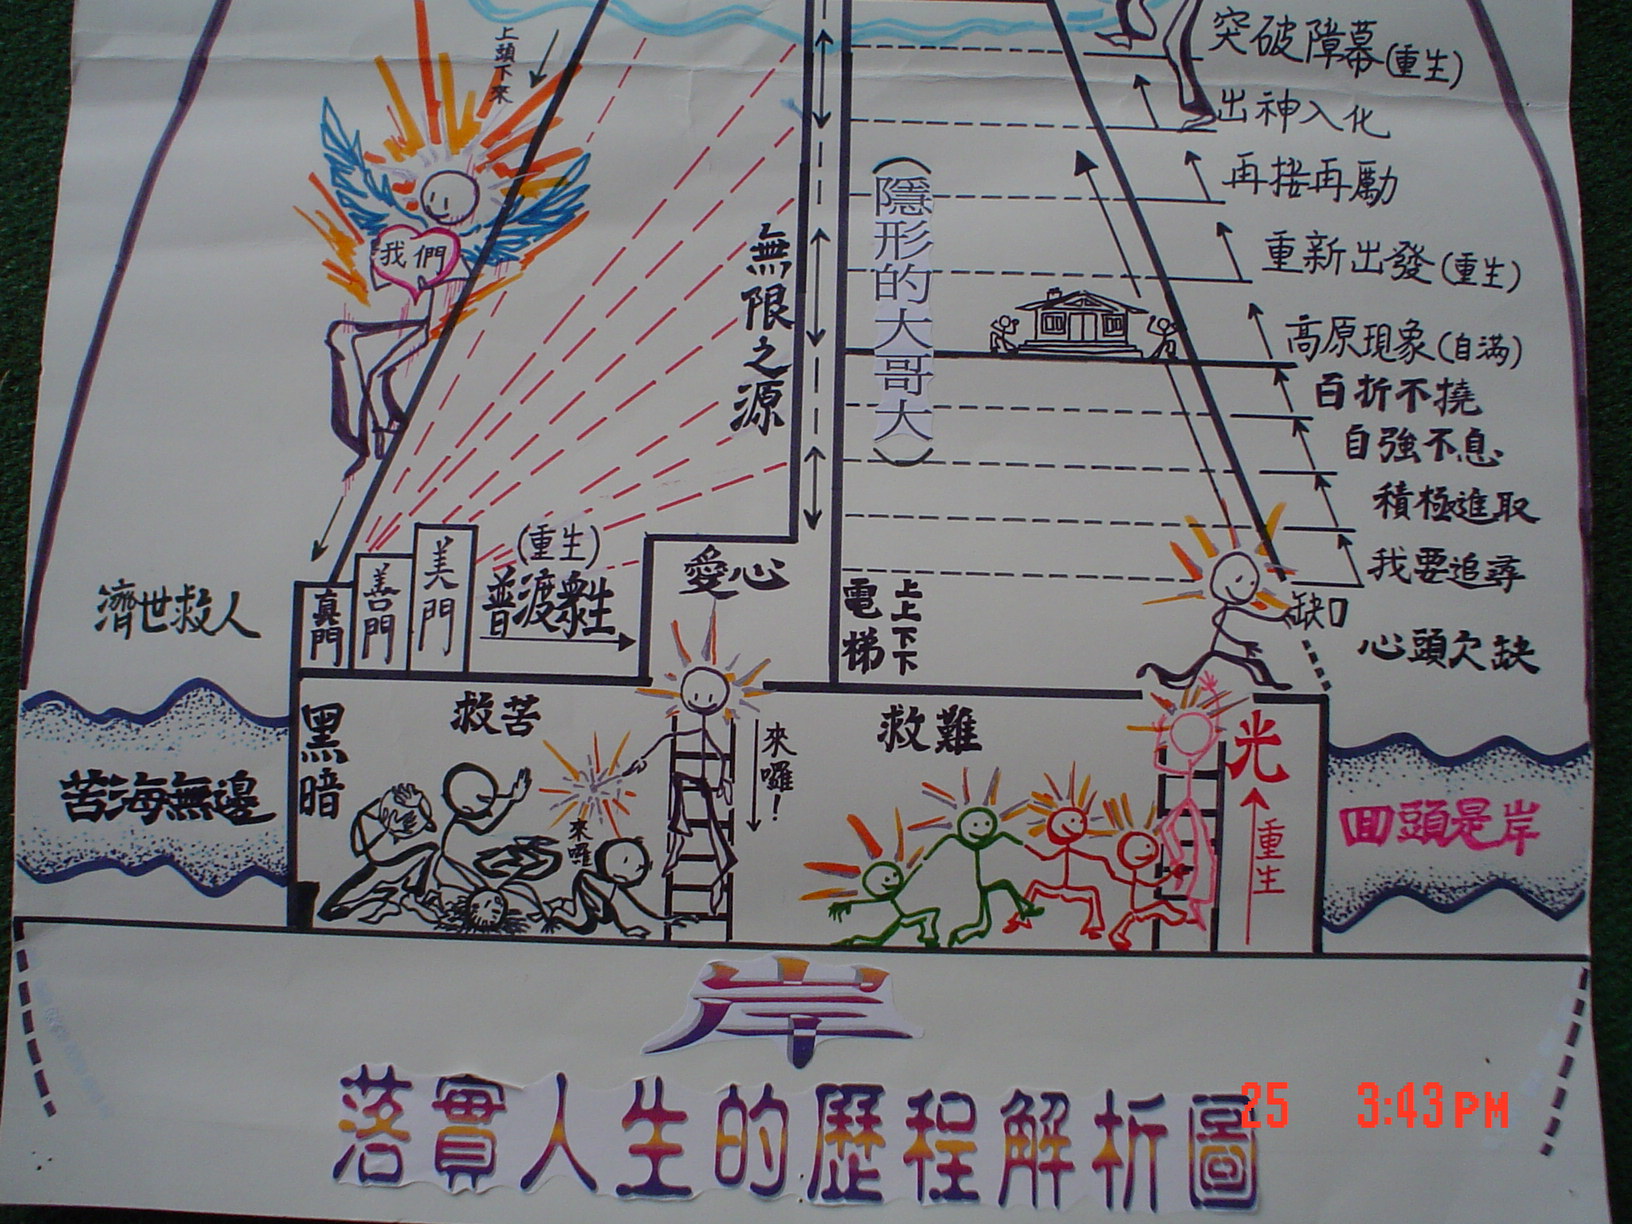 上頭下來
突破障幕(重生)
出神入化
再接再勵
重新出發(重生)
高原現象(自滿)
百折不撓
自強不息
積極進取
我要追尋
缺口
心頭欠缺
我們
無限之源
(隱形的大哥大)
濟世救人
真門
善門
美門
(重生)
普渡眾生
愛心
電梯
上上下下
黑暗
救苦
來囉!
來囉
救難
光
重生
苦海無邊
回頭是岸
岸
落實人生的歷程解析圖
25 3:43PM